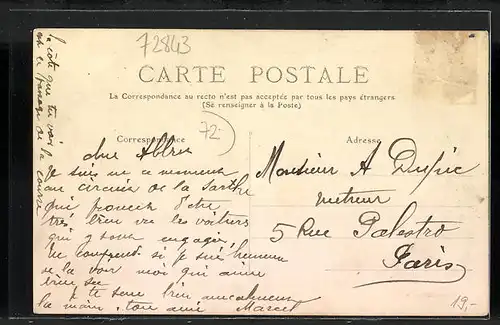 72843
CARTE POSTALE
La Correspondance au recto n'est pas acceptée par tous les pays étrangers
(Se renseigner à la Poste)
72
Correspondance
Adresse
la côte que tu vois
est le passage de la course
cher
Je suis en ce moment
au circuit de la Sarthe
qui
très bien vu les voitures
qui y sont engagés,
tu comprends si je suis heureux
de la voir moi qui aime
bien
je te serre bien amicalement
la main, ton ami Marcel
Monsieur A
metreur
5 Rue Palestro
Paris
19,-